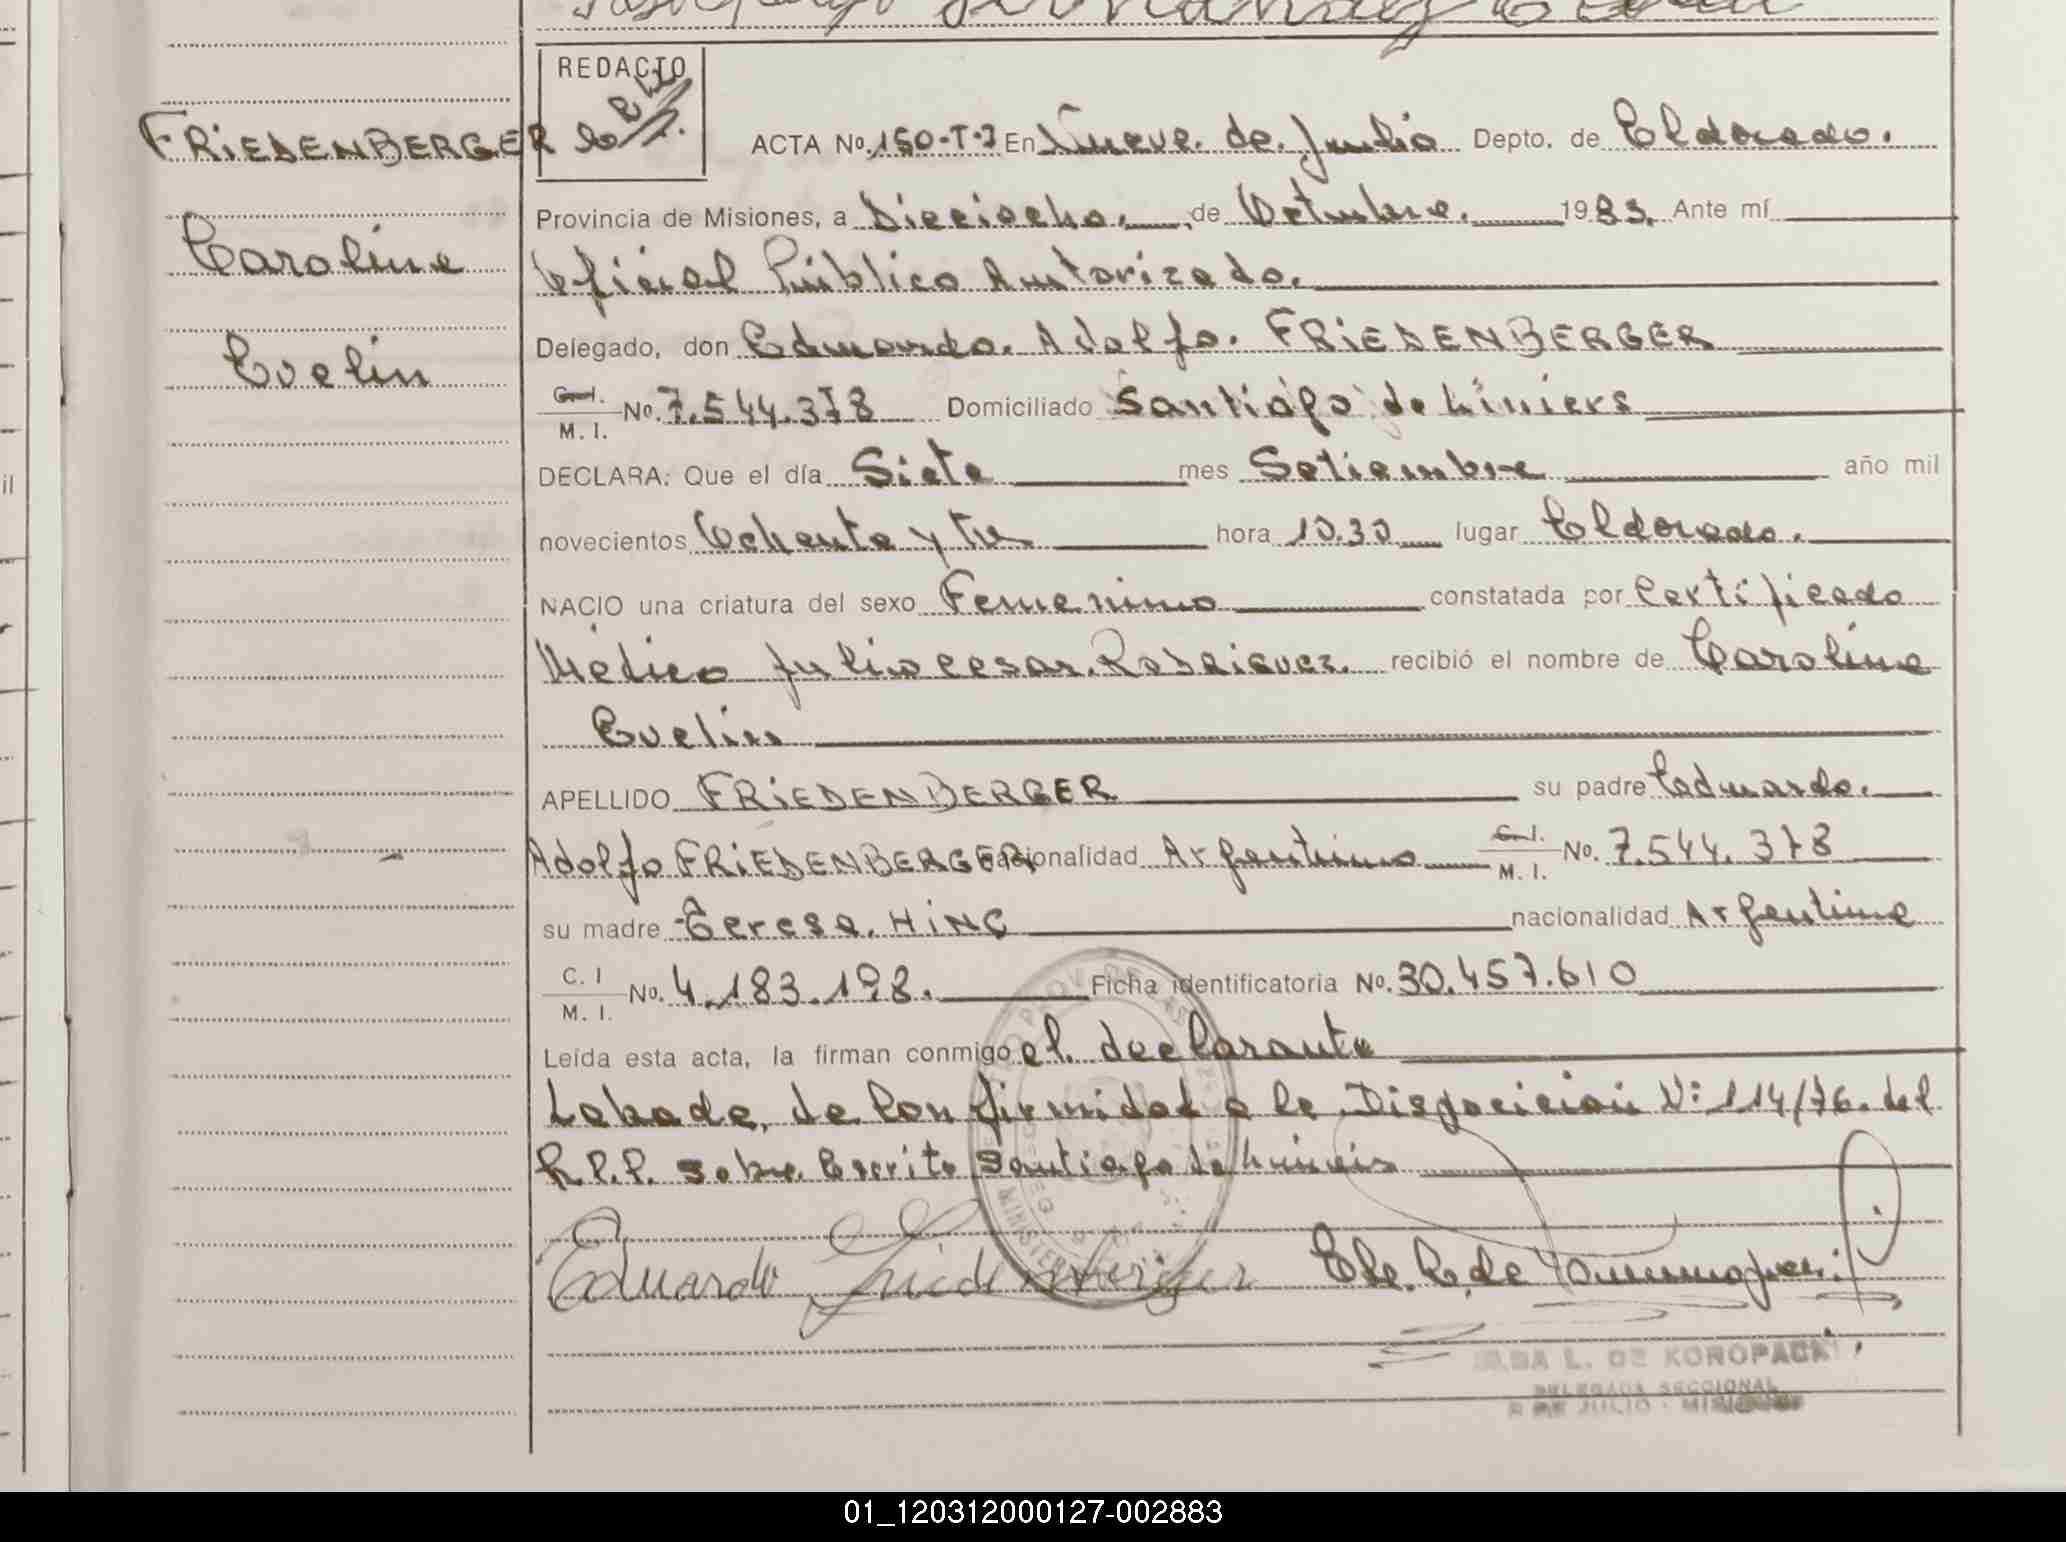 REDACTO
FRIEDENBERGER
Caroline
Evelin
ACTA No. 150-T-2 En Nueve de Julio Depto. de Eldorado.
Provincia de Misiones, a Dieciocho. de Octubre. 1983. Ante mí
Oficial Público Autorizado.
Delegado, don Eduardo. Adolfo. FRIEDENBERGER
C.I. M. I. No. 7.544.378 Domiciliado Santiágo de Liniers
DECLARA: Que el día Siete mes Setiembre año mil
novecientos Ochenta y tre hora 10.30 lugar Eldorado.
NACIO una criatura del sexo Femenino constatada por Certificado
Médico Julio Cesar Rodriguez. recibió el nombre de Caroline
Evelin
APELLIDO FRIEDENBERGER su padre Eduardo.
Adolfo FRIEDENBERGER nacionalidad Argentino C.I. M. I. No. 7.544.378
su madre Teresa. HING nacionalidad Argentina
C. I M. I. No. 4.183.198. Ficha identificatoria No. 30.457.610
Leída esta acta, la firman conmigo el. declarante
Labada, de Conformidad a la Disposición N: 114/76. del
R.P.P. sobre Escrito Santiago de Liniers
Eduardo Friedenberger
L. DE KOROPACK
DELEGADA SECCIONAL
9 DE JULIO - MISIONES
01_120312000127-002883